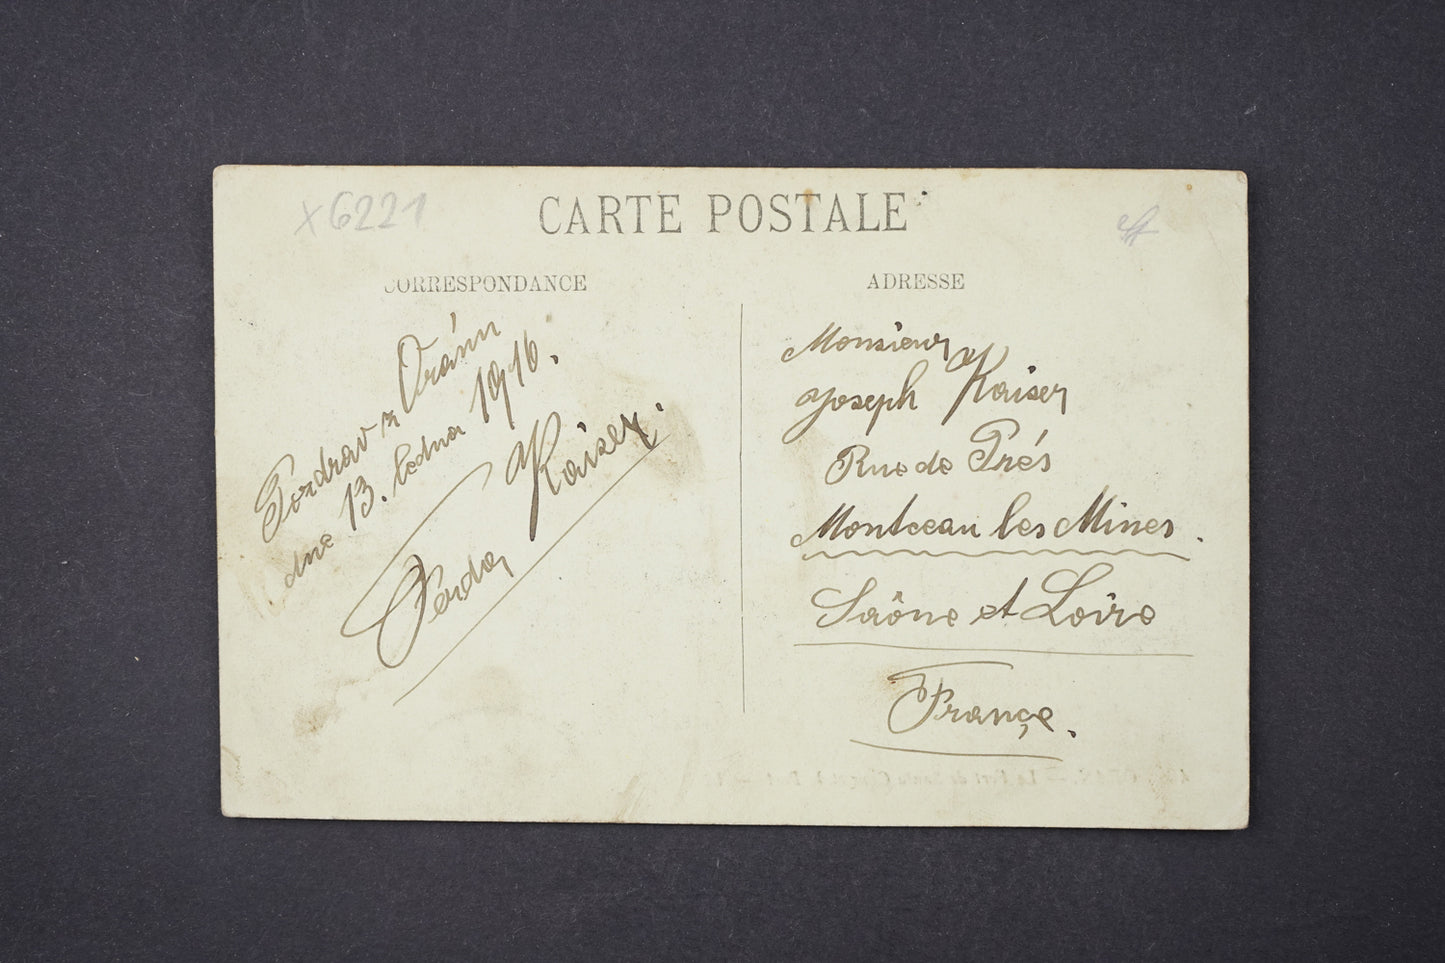 x6221
CARTE POSTALE
CORRESPONDANCE
Pozdrav z Oránu
dne 13. ledna 1916.
Ferda Kaiser.
ADRESSE
Monsieur
Joseph Kaiser
Rue de Prés
Montceau les Mines.
Saône et Loire
Françe.